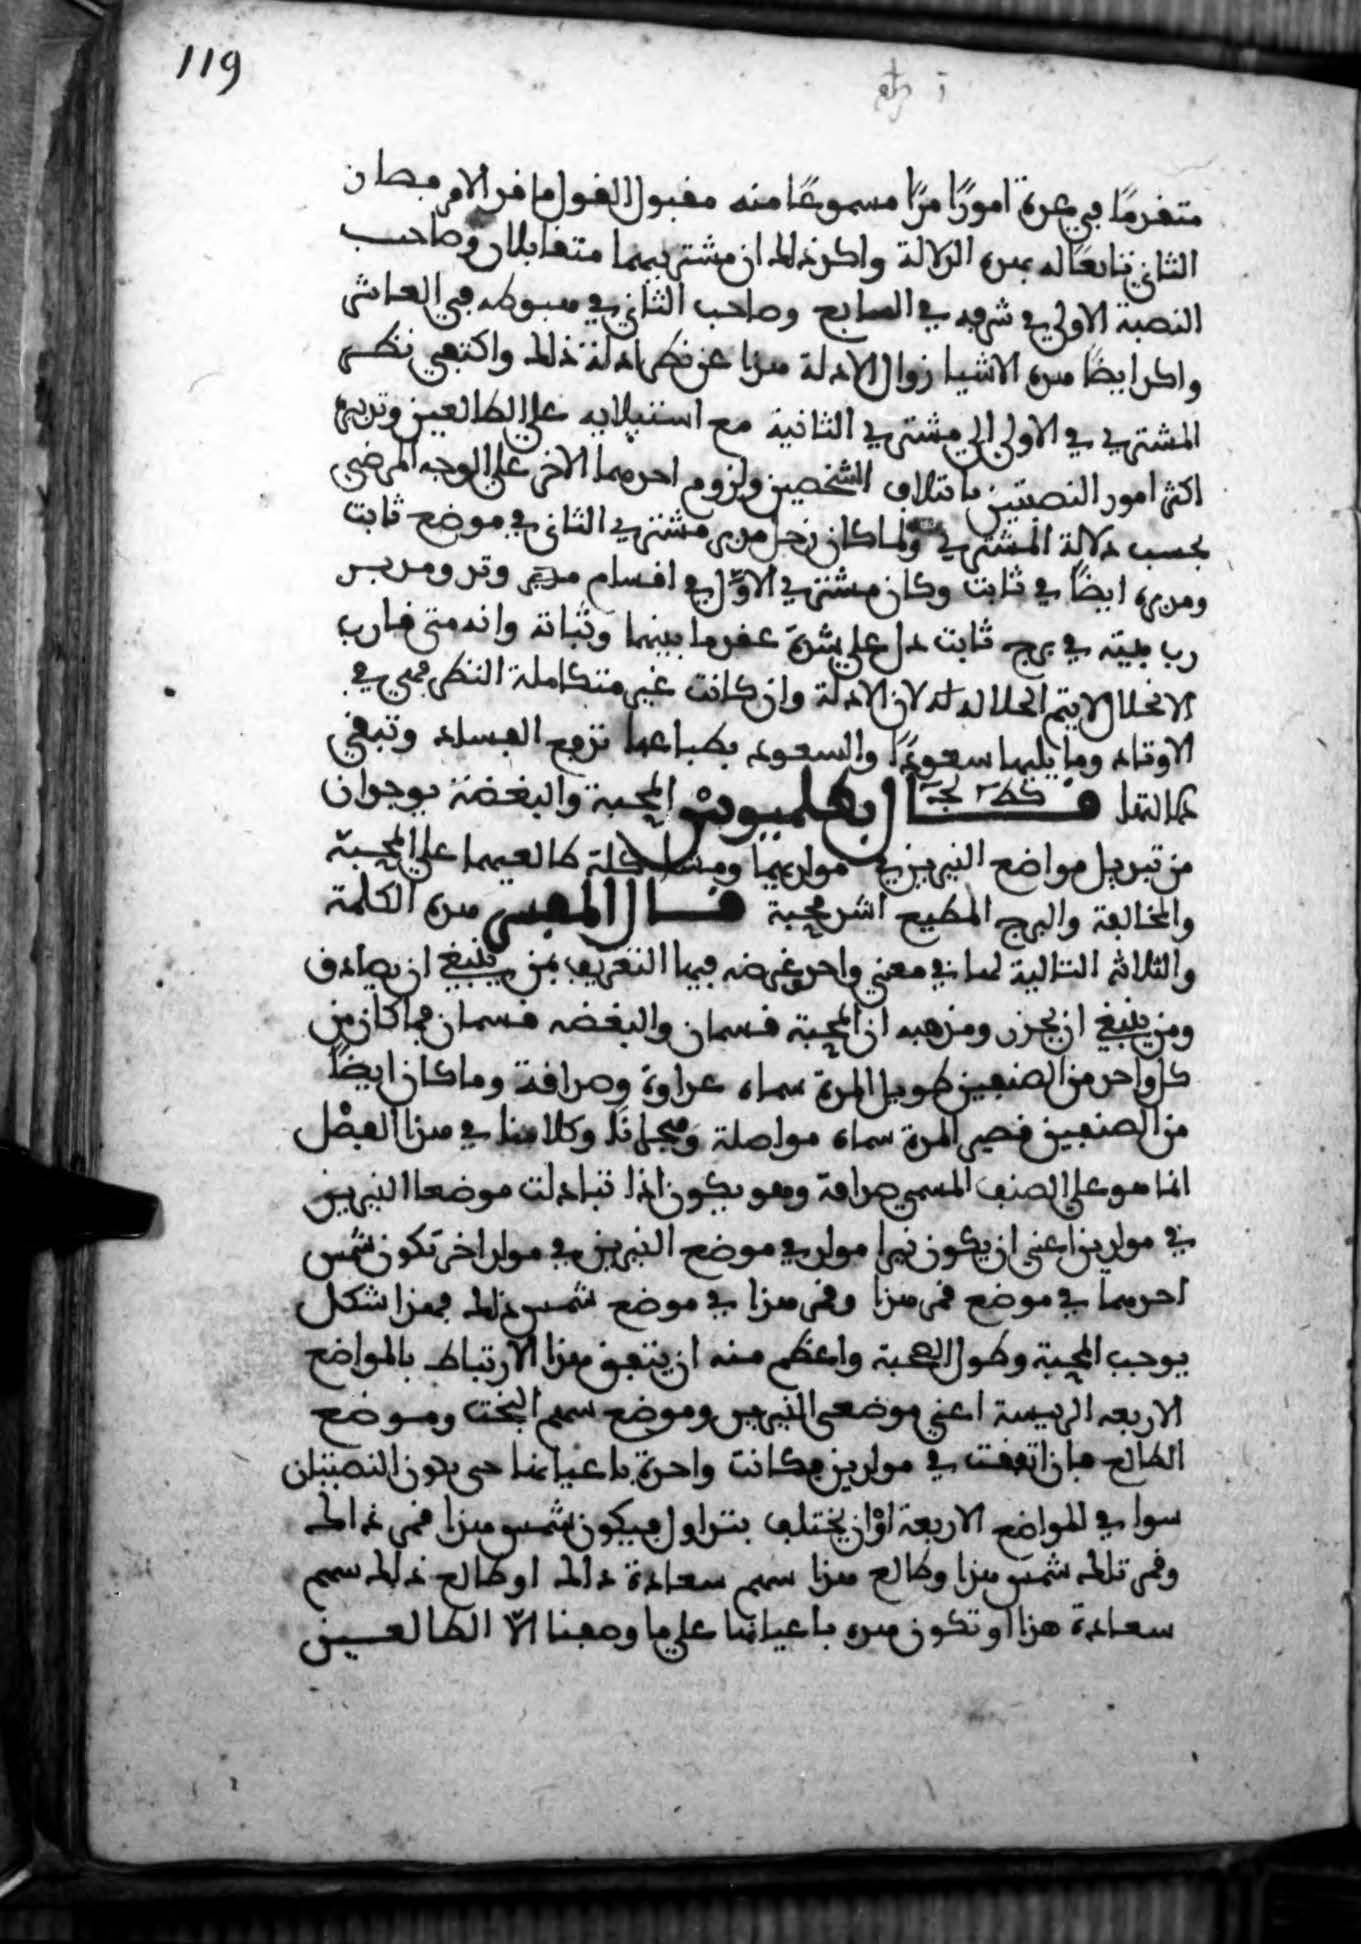 119
متقدما في عدة امورًا مرًا مسموعًا منه مقبول القول ما قدر الامر فصار
الثاني تابعًا له بهذه الدلالة واكد ذلك ان مشتريهما متقابلان وصاحب
النصبة الاولى في شرفه في السابع وصاحب الثاني في هبوطه في العاشر
واكد ايضًا هذه الاشيا زوال الادلة هذا عن نظر ادلة ذلك واكتفى نظر
المشتري في الاولى الى مشتري الثانية مع استيلايه على الطالعين وتدبيره
اكثر امور النصبتين بايتلاف الشخصين ولزوم احدهما الاخر على الوجه المرضي
بحسب دلالة المشتري ولما كان زحل مدبر مشتري الثاني في موضع ثابت
ومدبره ايضًا في ثابت وكان مشتري الاوّل في اقسام وتد ومدبر
رب بيته في برج ثابت دل على شدة عقد ما بينهما وثباته وانه متى قارب
الانحلال لا يتم انحلاله لان الادلة وان كانت غير متكاملة النظر فهي في
الاوتاد وما يليها سعودًا والسعود بطباعها تدفع الفساد وتبقي
كمالتها قــال بطلميوس المحبة والبغضة يوجدان
من تبديل مواضع النيرين في مواليدهما ومشاكلة طالعيهما على المحبة
والمخالفة والبرج المطيع اشد محبة قــال المفسر هذه الكلمة
والثلاثه التالية لها في معنى واحد وغرضه فيها التعريف بمن ينبغي ان يصادق
ومن ينبغي ان يحذر ومذهبه ان المحبة قسمان والبغضه قسمان فما كان من
كل واحد من الصنفين طويل المدة سماه عداوة وصداقة وما كان ايضًا
من الصنفين قصير المدة سماه مواصلة وهجرانًا وكلامنا في هذا الفصْل
انما هو على الصنف المسمى صداقة وهو يكون اذا تبادلت موضعا النيرين
في مولدين اعني ان يكون نيرا مولد في موضع النيرين في مولد اخر تكون شمس
احدهما في موضع قمر هذا وقمر هذا في موضع شمس ذلك فهذا شكل
يوجب المحبة وطول الصحبة واعظم منه ان يتفق هذا الارتباط بالمواضع
الاربعه الرييسة اعني موضعي النيرين وموضع سهم البخت وموضع
الطالع فان اتفقت في مولدين فكانت واحدة باعيانها حتى تكون النصبتان
سوا في المواضع الاربعة اوْ ان يختلف بتداول فيكون شمس هذا قمر ذالك
وقمر تلك شمس هذا وطالع هذا سهم سعادة ذالك او طالع ذلك سهم
سعادة هذا او تكون هذه باعيانها على ما وصفنا الّا الطالعين